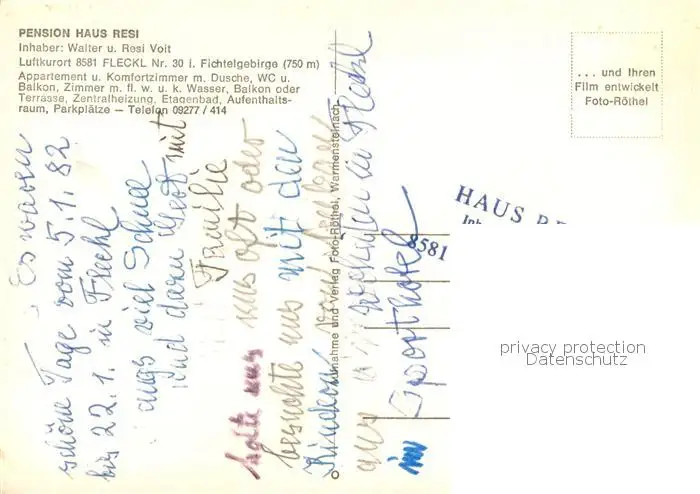 PENSION HAUS RESI
Inhaber: Walter u. Resi Voit
Luftkurort 8581 FLECKL Nr. 30 i. Fichtelgebirge (750 m)
Appartement u. Komfortzimmer m. Dusche, WC u.
Balkon, Zimmer m. fl. w. u. k. Wasser, Balkon oder
Terrasse, Zentralheizung, Etagenbad, Aufenthalts-
raum, Parkplätze — Telefon 09277 / 414
. . . und Ihren
Film entwickelt
Foto-Röthel
Es waren
schöne Tage vom 5.1.82
bis 22.1. in Fleckl
viel Schnee
und dann mit
Familie
uns oft oder
besuchte uns mit den
Kindern von
aus wohnten in Fleckl
im Sporthotel
Aufnahme und Verlag Foto-Röthel, Warmensteinach
HAUS
8581
privacy protection
Datenschutz